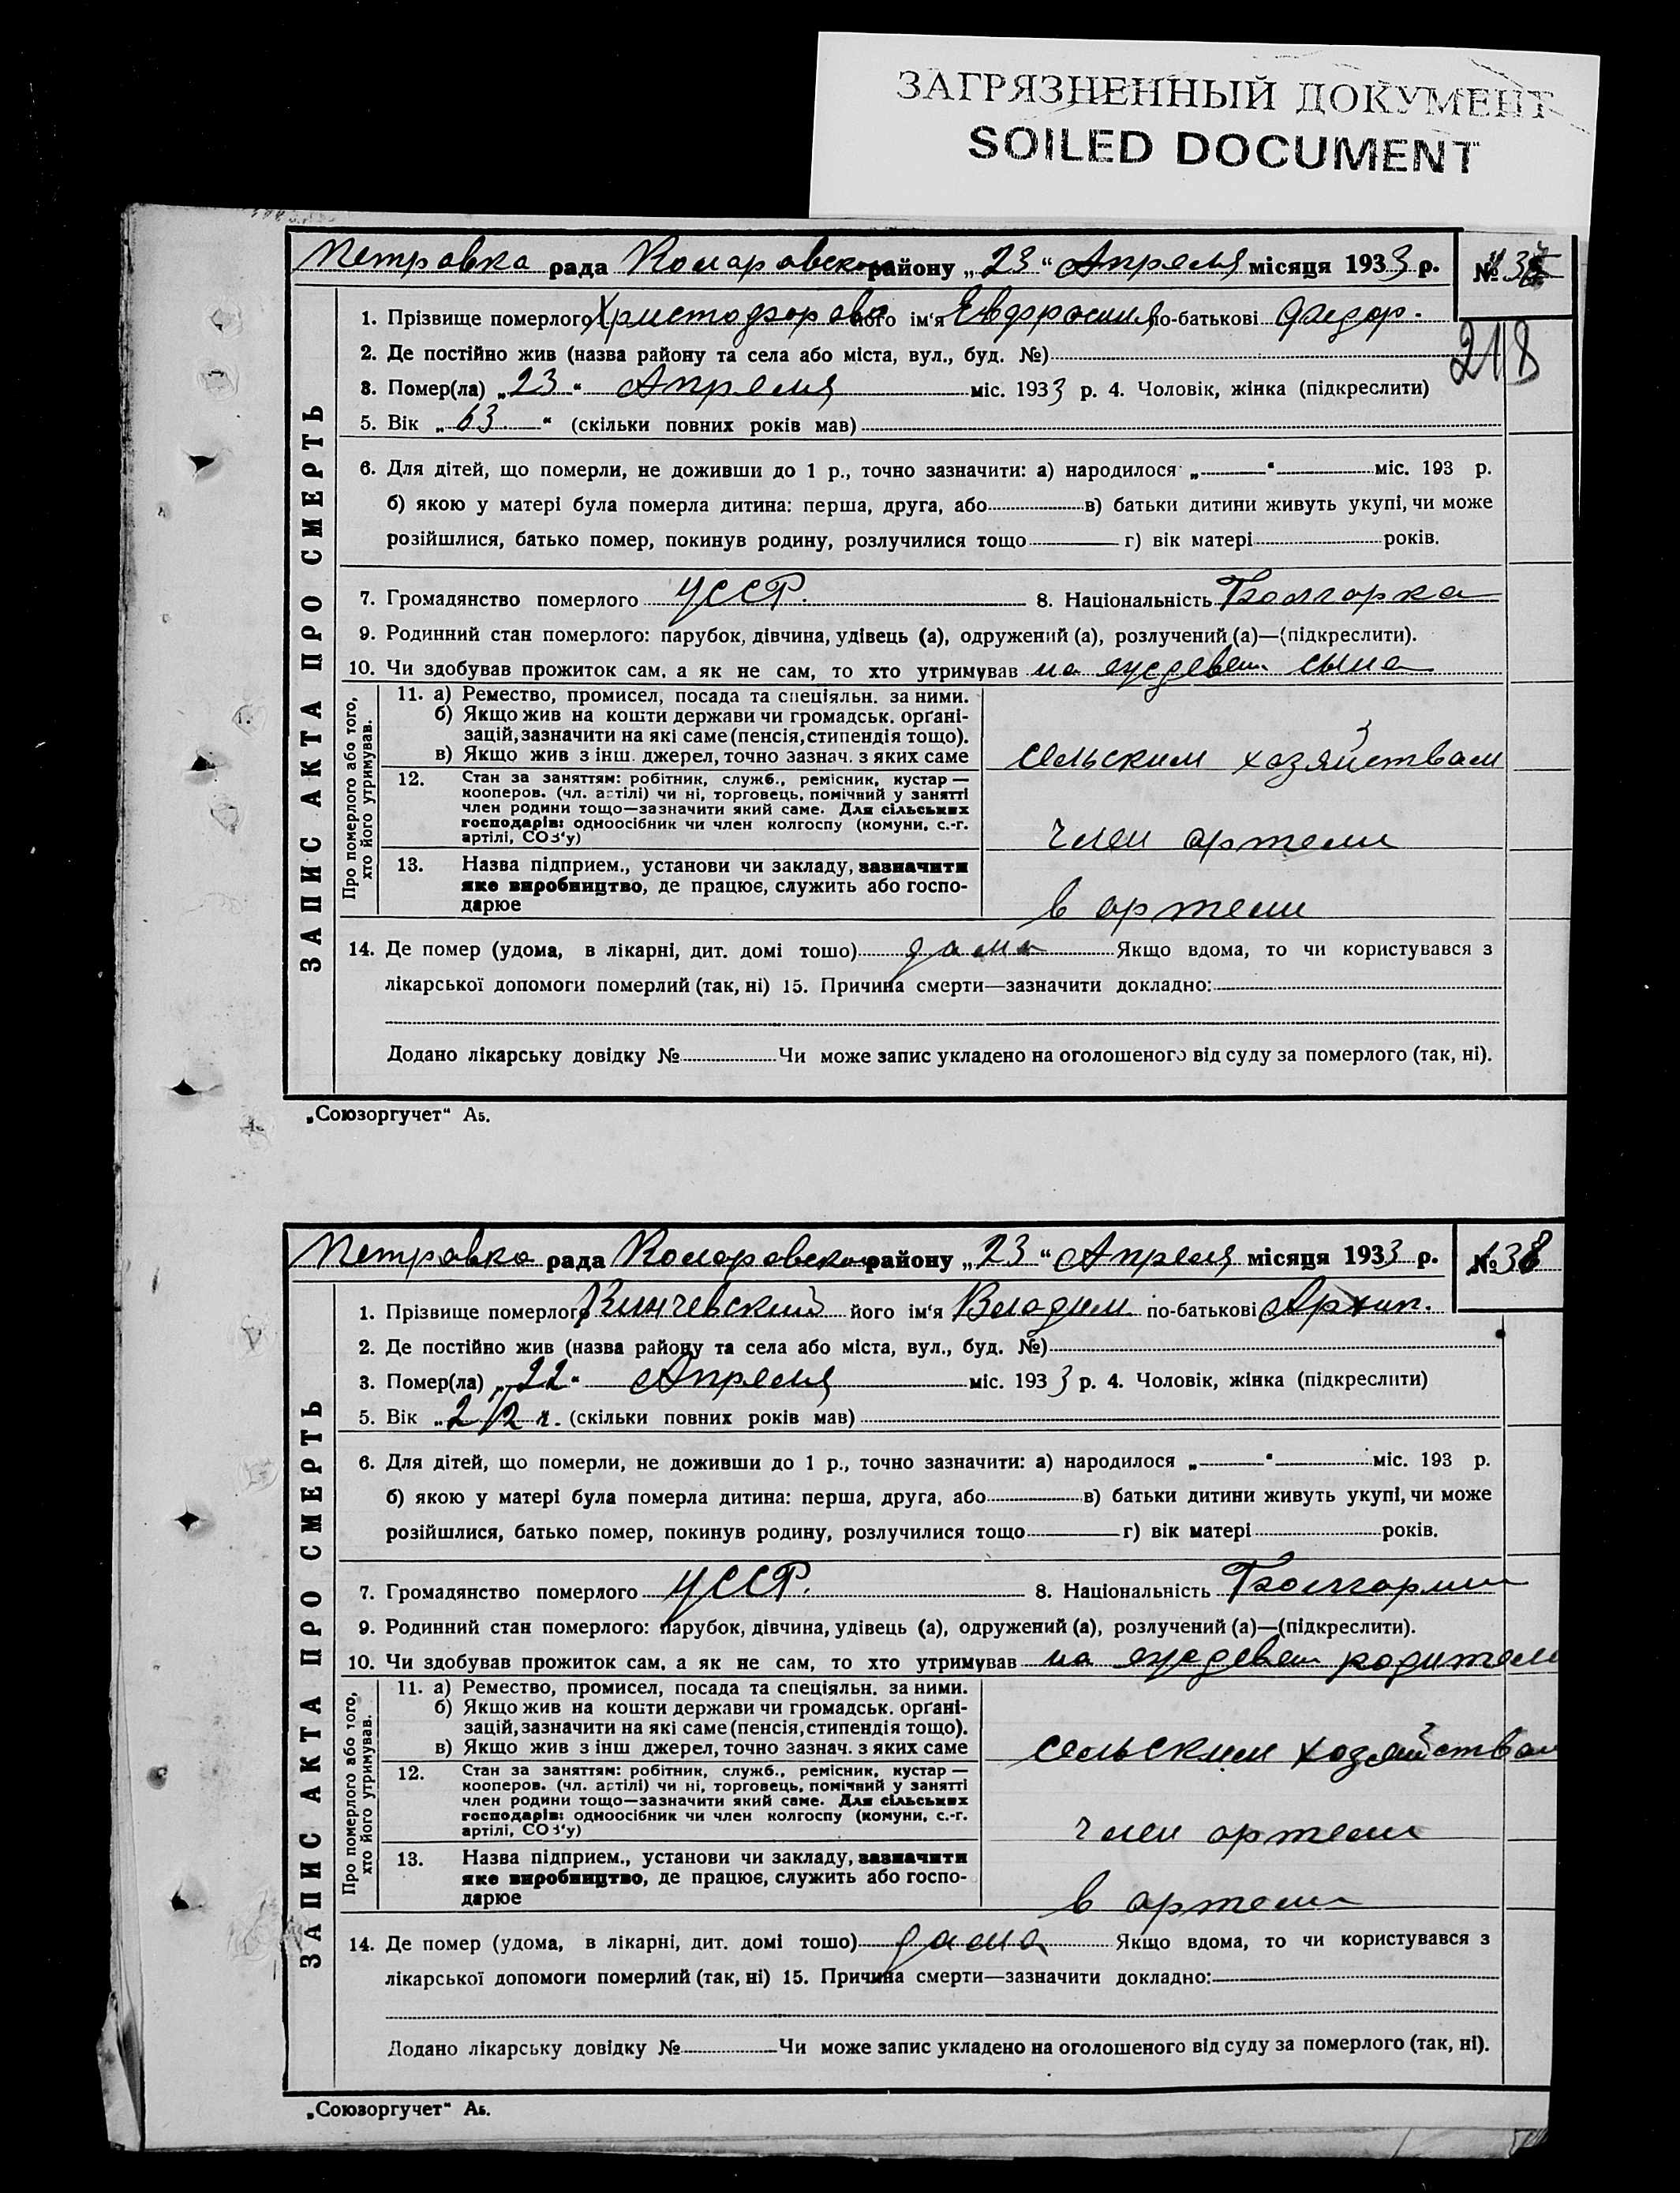 ЗАГРЯЗНЕННЫЙ ДОКУМЕНТ
SOILED DOCUMENT
Петровка рада Коларовского району „23“ Апреля місяця 1933 р. №
218
1. Прізвище померлого Христофорова його ім‘я Евфросиния по-батькові Федор.
2. Де постійно жив (назва району та села або міста, вул., буд. №)
3. Помер(ла) „23“ Апреля міс. 1933 р. 4. Чоловік, жінка (підкреслити)
5. Вік „63“ (скільки повних років мав)
6. Для дітей, що померли, не доживши до 1 р., точно зазначити: а) народилося „ “ міс. 193 р.
б) якою у матері була померла дитина: перша, друга, або в) батьки дитини живуть укупі, чи може
розійшлися, батько помер, покинув родину, розлучилися тощо г) вік матері років.
7. Громадянство померлого УССР. 8. Національність Болгарка
9. Родинний стан померлого: парубок, дівчина, удівець (а), одружений (а), розлучений (а)—(підкреслити).
10. Чи здобував прожиток сам, а як не сам, то хто утримував на иждевен сына
ЗАПИС АКТА ПРО СМЕРТЬ
Про померлого або того, хто його утримував.
11. а) Ремество, промисел, посада та спеціяльн. за ними.
б) Якщо жив на кошти держави чи громадськ. орґані-
зацій, зазначити на які саме (пенсія, стипендія тощо).
в) Якщо жив з інш. джерел, точно зазнач. з яких саме
сельским хозяйствам
12. Стан за заняттям: робітник, служб., ремісник, кустар —
кооперов. (чл. артілі) чи ні, торговець, помічний у занятті
член родини тощо—зазначити який саме. Для сільських
господарів: одноосібник чи член колгоспу (комуни, с.-г.
артілі, СОЗ‘у)
член артели
13. Назва підприєм., установи чи закладу, зазначити
яке виробництво, де працює, служить або госпо-
дарює
в артели
14. Де помер (удома, в лікарні, дит. домі тощо) дома Якщо вдома, то чи користувався з
лікарської допомоги померлий (так, ні) 15. Причина смерти—зазначити докладно:
Додано лікарську довідку № Чи може запис укладено на оголошеного від суду за померлого (так, ні).
„Союзоргучет“ А5.
Петровка рада Коларовского району „23“ Апреля місяця 1933 р. №38
1. Прізвище померлого його ім‘я Владим по-батькові Архип.
2. Де постійно жив (назва району та села або міста, вул., буд. №)
3. Помер(ла) „22“ Апреля міс. 1933 р. 4. Чоловік, жінка (підкреслити)
5. Вік „2 1/2 г. (скільки повних років мав)
6. Для дітей, що померли, не доживши до 1 р., точно зазначити: а) народилося „ “ міс. 193 р.
б) якою у матері була померла дитина: перша, друга, або в) батьки дитини живуть укупі, чи може
розійшлися, батько помер, покинув родину, розлучилися тощо г) вік матері років.
7. Громадянство померлого УССР. 8. Національність Болгарин
9. Родинний стан померлого: парубок, дівчина, удівець (а), одружений (а), розлучений (а)—(підкреслити).
10. Чи здобував прожиток сам, а як не сам, то хто утримував на иждевен родители
ЗАПИС АКТА ПРО СМЕРТЬ
Про померлого або того, хто його утримував.
11. а) Ремество, промисел, посада та спеціяльн. за ними.
б) Якщо жив на кошти держави чи громадськ. орґані-
зацій, зазначити на які саме (пенсія, стипендія тощо).
в) Якщо жив з інш джерел, точно зазнач. з яких саме
сельским хозяйствам
12. Стан за заняттям: робітник, служб., ремісник, кустар —
кооперов. (чл. артілі) чи ні, торговець, помічний у занятті
член родини тощо—зазначити який саме. Для сільських
господарів: одноосібник чи член колгоспу (комуни, с.-г.
артілі, СОЗ‘у)
член артели
13. Назва підприєм., установи чи закладу, зазначити
яке виробництво, де працює, служить або госпо-
дарює
в артели
14. Де помер (удома, в лікарні, дит. домі тощо) дома Якщо вдома, то чи користувався з
лікарської допомоги померлий (так, ні) 15. Причина смерти—зазначити докладно:
Додано лікарську довідку № Чи може запис укладено на оголошеного від суду за померлого (так, ні).
„Союзоргучет“ А5.